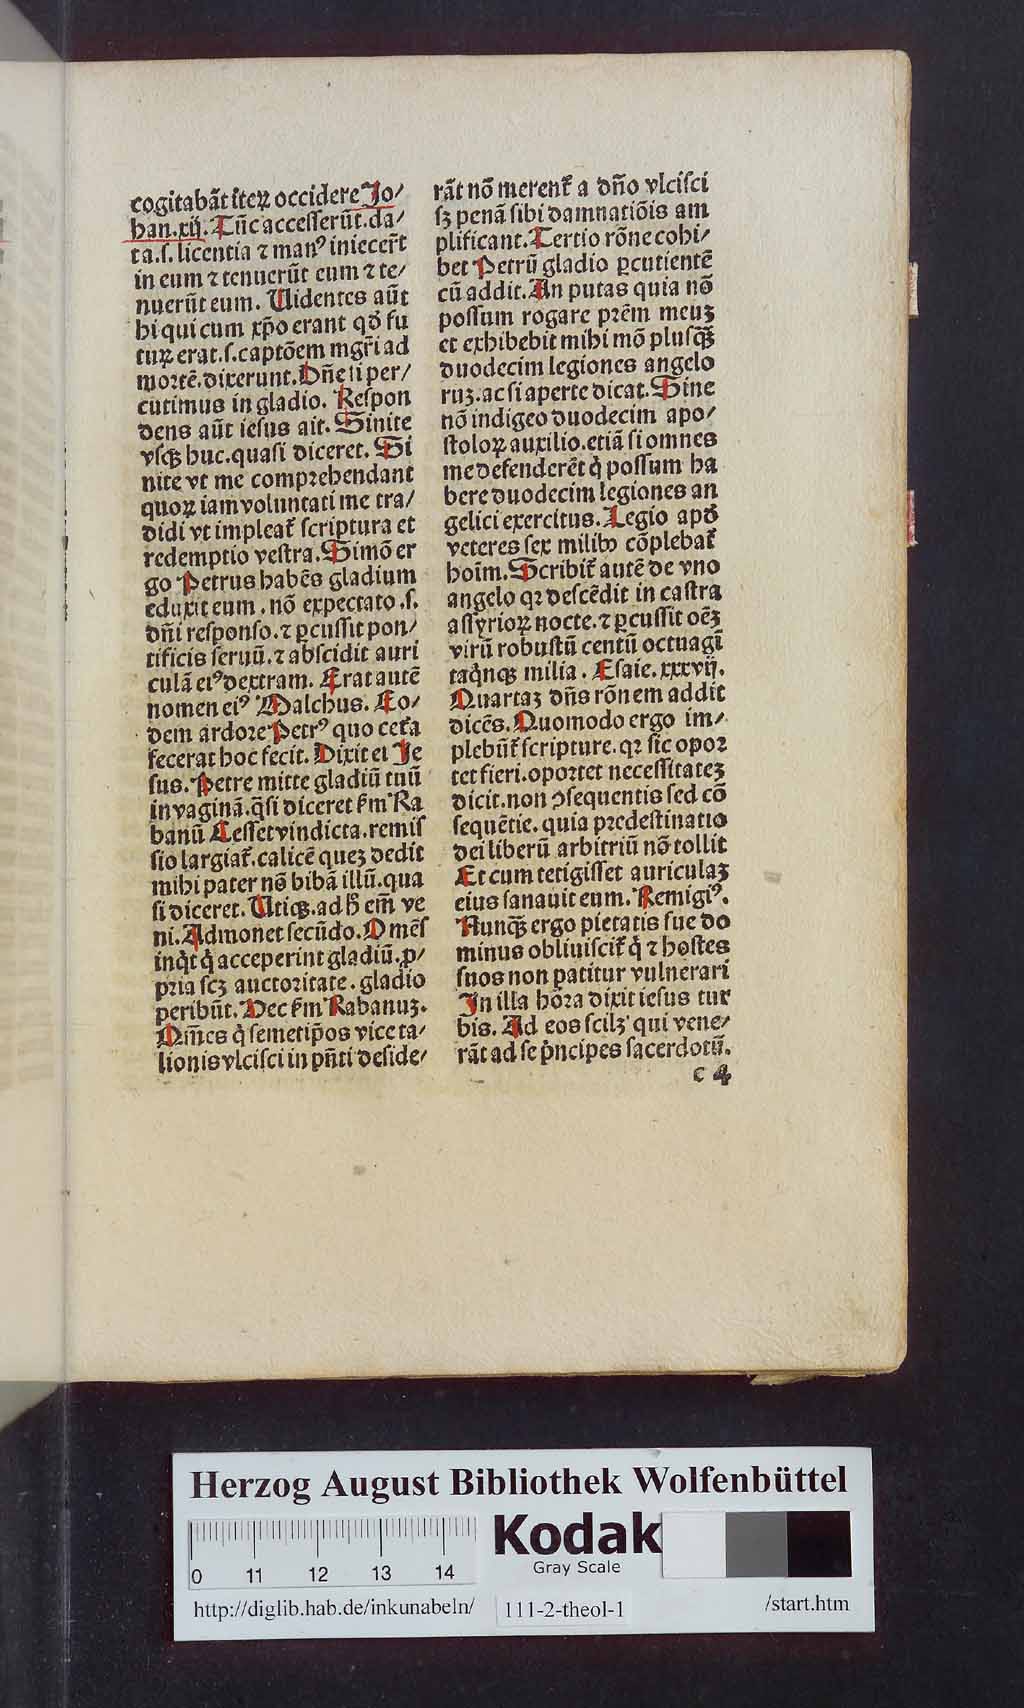 cogitabãt iteꝝ occidere Jo/
han.xij. Tũc accesserũt.da/
ta.s. licentia ⁊ manꝰ iniecer̃t
in eum ⁊ tenuerũt eum ⁊ te/
nuerũt eum. Uidentes aũt
hi qui cum xp̃o erant qđ fu
tuꝝ erat.s.captõem mgr̃i ad
mortẽ.dixerunt.Dñe si per/
cutimus in gladio. Respon
dens aũt iesus ait. Sinite
vsqꝫ huc.quasi diceret. Si
nite vt me comprehendant
quoꝝ iam voluntati me tra/
didi vt impleat̃ scriptura et
redemptio vestra. Simõ er
go Petrus habẽs gladium
eduxit eum . nõ expectato .s.
dñi responso.⁊ ꝑcussit pon/
tificis seruũ.⁊ abscidit auri
culã eiꝰ dextram. Erat autẽ
nomen eiꝰ Malchus. Eo/
dem ardore Petrꝰ quo cet̃a
fecerat hoc fecit. Dixit ei Je
sus. Petre mitte gladiũ tuũ
in vaginã.q̃si diceret ẜm Ra
banũ Cesset vindicta.remis
sio largiat̃.calicẽ queꝫ dedit
mihi pater nõ bibã illũ.qua
si diceret. Utiqꝫ.ad ħ em̃ ve
ni. Admonet secũdo. Omẽs
inq̇t q̇ acceperint gladiũ.ꝓ/
pria scꝫ auctoritate . gladio
peribũt. Hec ẜm Rabanuꝫ.
Om̃es q̇ semetip̃os vice ta/
lionis vlcisci in pñti deside/
rãt nõ merent̃ a dño vlcisci
sꝫ penã sibi damnatiõis am
plificant. Tertio rõne cohi/
bet Petrũ gladio ꝑcutientẽ
cũ addit. An putas quia nõ
possum rogare prẽm meuꝫ
et exhibebit mihi mõ plusq̃ꝫ
duodecim legiones angelo
ruꝫ.ac si aperte dicat. Sine
nõ indigeo duodecim apo/
stoloꝝ auxilio.etiã si omnes
me defenderẽt q̇ possum ha
bere duodecim legiones an
gelici exercitus. Legio apđ
veteres sex milibꝰ cõplebat̃
hoĩm. Scribit̃ autẽ de vno
angelo qꝛ descẽdit in castra
assyrioꝝ nocte.⁊ ꝑcussit oẽꝫ
virũ robustũ centũ octuagĩ
taq̇nqꝫ milia . Esaie. xxxvij.
Quartaꝫ dñs rõnem addit
dicẽs. Quomodo ergo im/
plebũt̃ scripture. qꝛ sic opor
tet fieri.oportet necessitateꝫ
dicit.non ↄsequentis sed cõ
sequẽtie. quia predestinatio
dei liberũ arbitriũ nõ tollit
Et cum tetigisset auriculaꝫ
eius sanauit eum. Remigiꝰ.
Nunq̃ꝫ ergo pietatis sue do
minus obliuiscit̃ q̇ ⁊ hostes
suos non patitur vulnerari
In illa hora dixit iesus tur
bis. Ad eos scilꝫ qui vene/
rãt ad se p̃ncipes sacerdotũ.
c 4
Herzog August Bibliothek Wolfenbüttel
0 11 12 13 14
Kodak
Gray Scale
http://diglib.hab.de/inkunabeln/ 111-2-theol-1 /start.htm